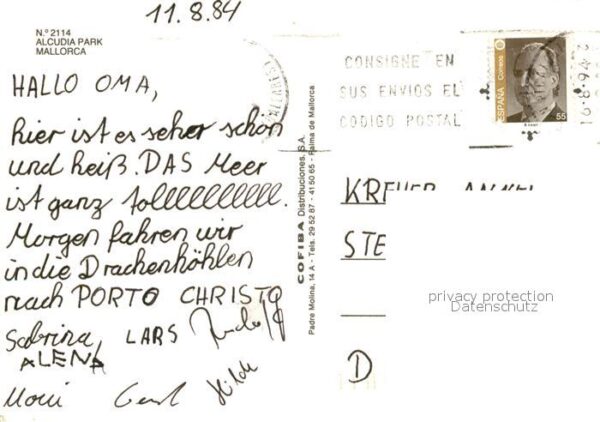 11.8.84
N.º 2114
ALCUDIA PARK
MALLORCA
HALLO OMA,
hier ist es seher schön
und heiß. DAS Meer
ist ganz tollllllllllll.
Morgen fahren wir
in die Drachenhöhlen
nach PORTO CHRISTO
Sabrina, LARS
ALENA
Gerd Hilde
COFIBA Distribuciones, S.A.
Padre Molina, 14 A - Tels. 29 52 87 - 41 50 65 - Palma de Mallorca
CONSIGNE EN
SUS ENVIOS EL
CODIGO POSTAL
ESPAÑA
Correos
55
16-8-94
STE
D
privacy protection
Datenschutz